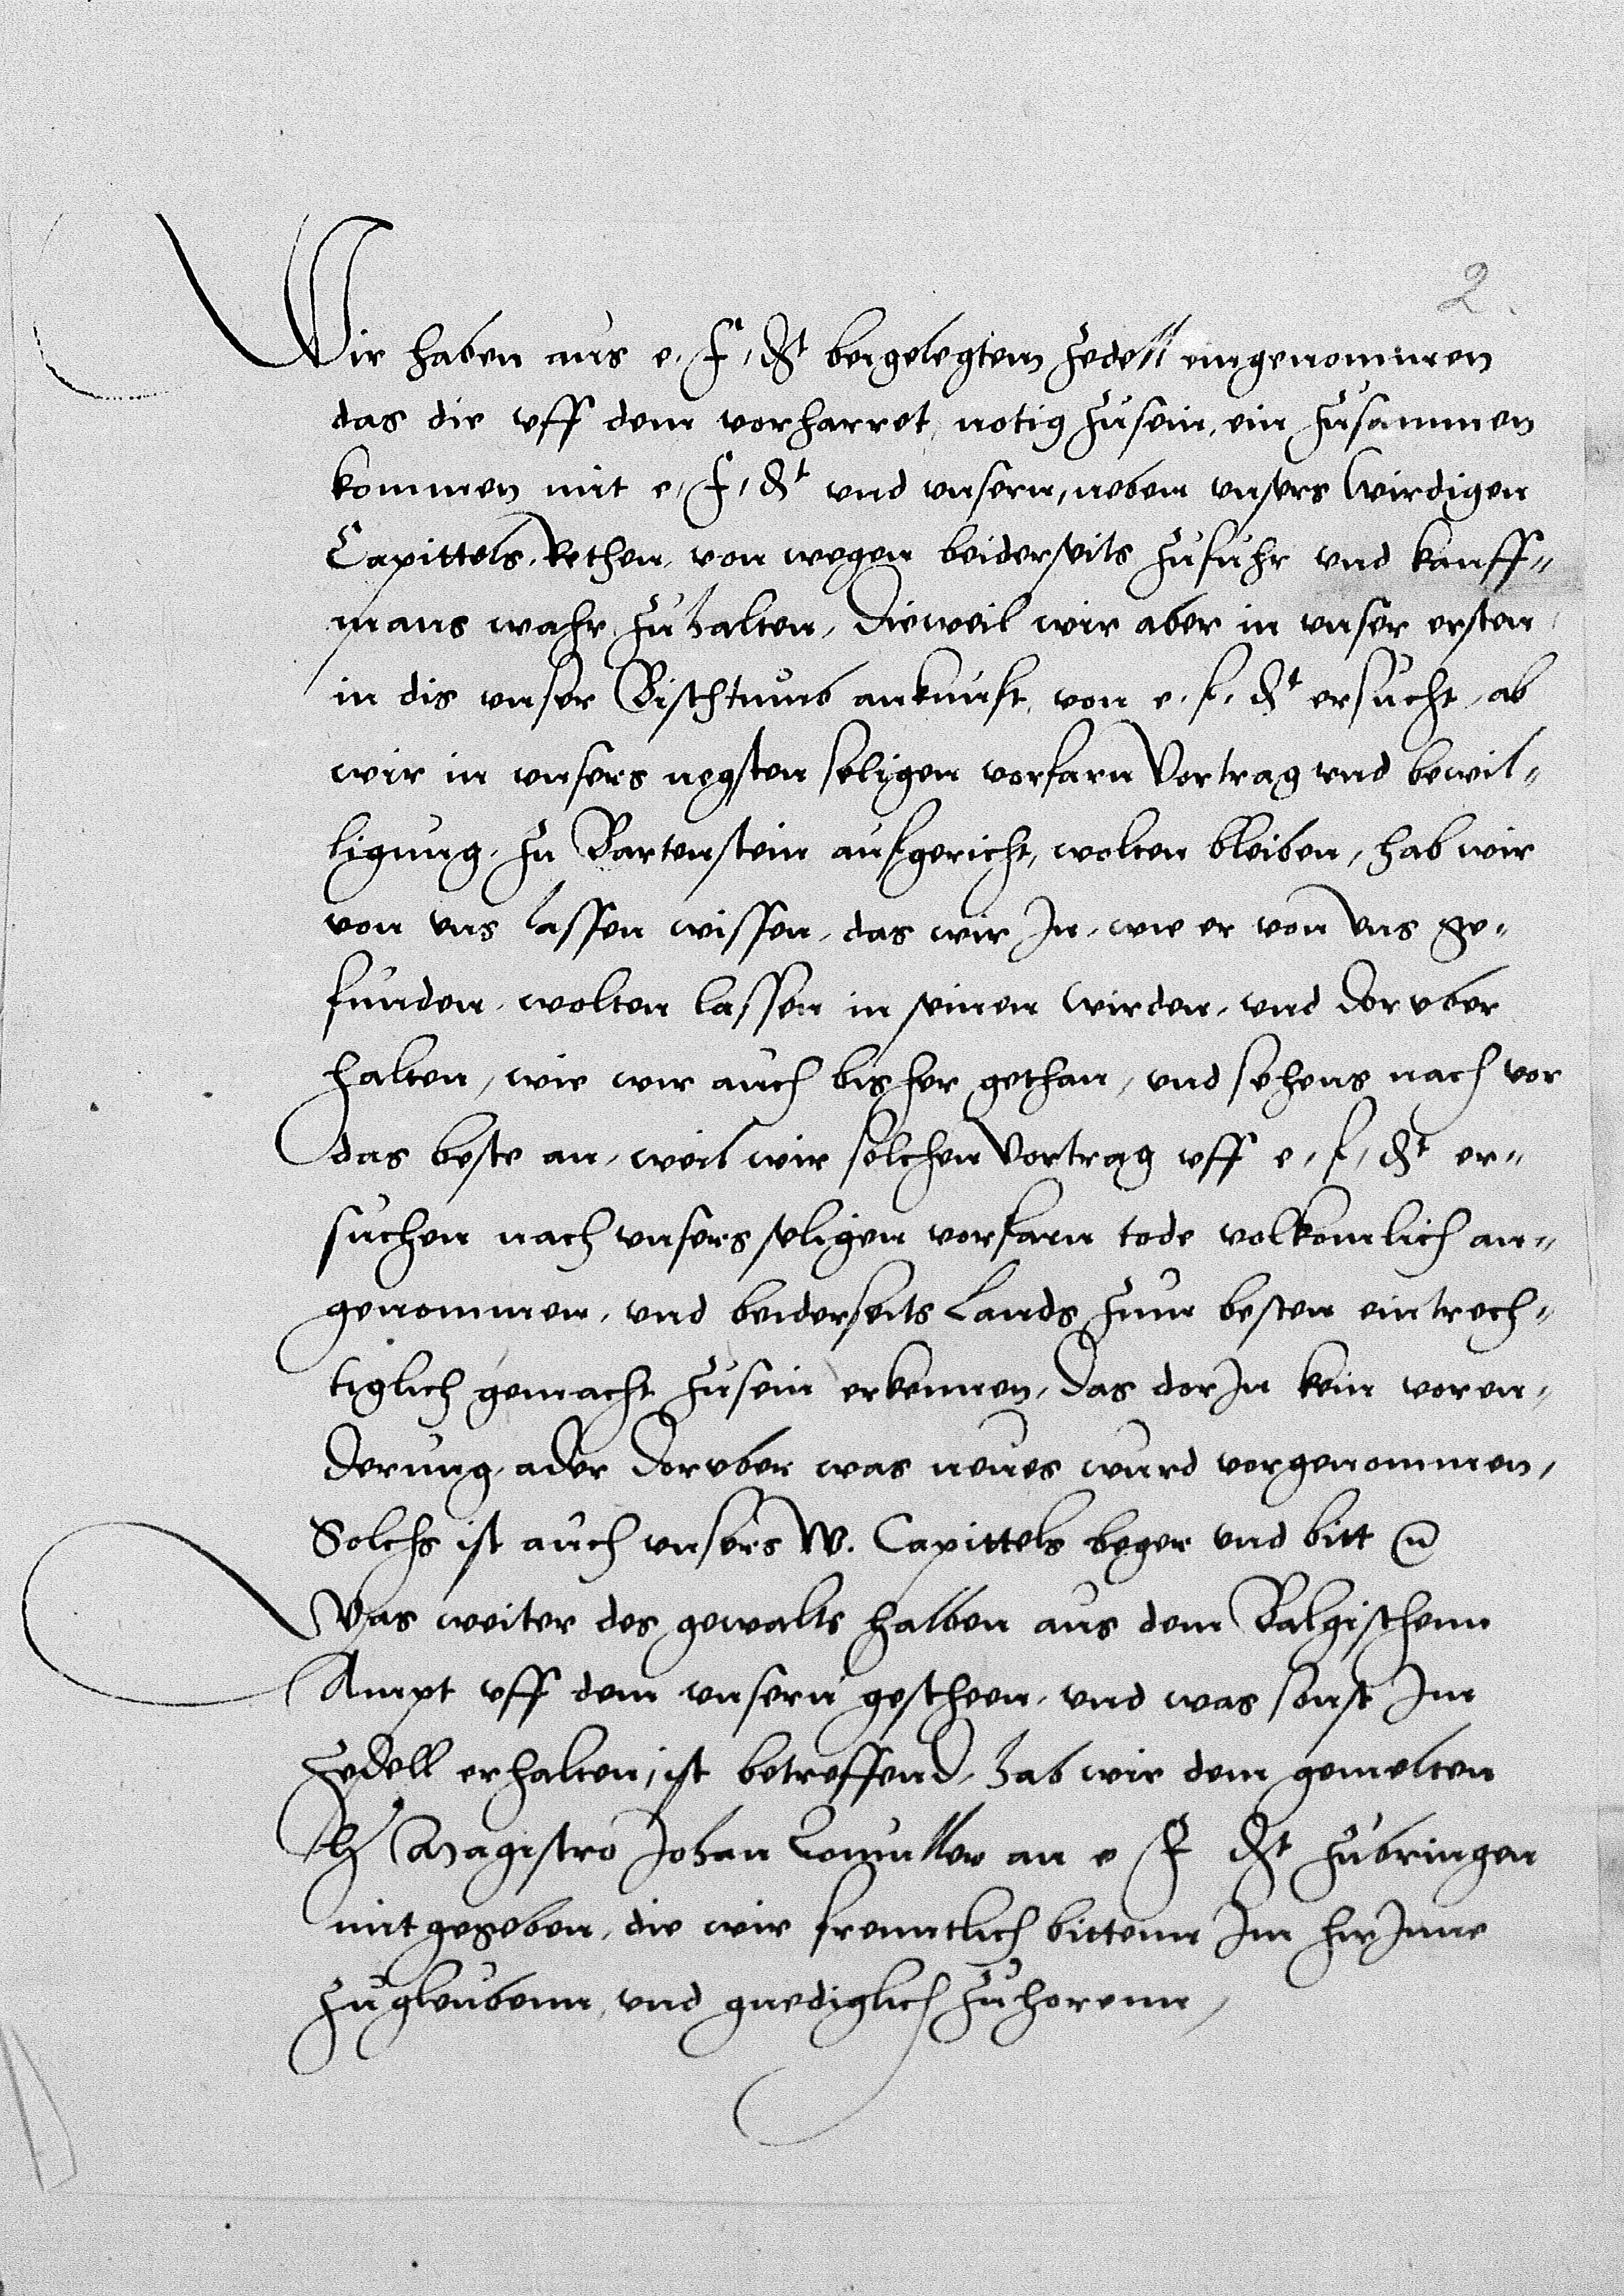 2.
Wir haben aus e. f. dt beygelegtem Zedell eingenommen
das die uff dem vorharret, notig zusein, ein zusammen
kommen mit e. f. dt und unsern, neben unsers wirdigen
Capittels, Rethen, von wegen beiderseits zufuhr und kauff-
mans wahr, zu halten, Dieweil wir aber in unser ersten
in dis unser Bischtumb ankunft, von e. f. dt ersucht, ab
wir in unsers negsten seligen vorfarn Vortrag und bewil-
ligung, zu Bartenstein aufgericht, wolten bleiben, hab wir
von uns lassen wissen, das wir In, wie er von uns ge-
funden, wolten lassen in seinen wirden, und doruber
halten, wie wir auch bisher gethan, und sehens nach vor
das beste an, weil wir solchen Vortrag uff e. f. dt er-
suchen nach unsers seligen vorfarn tode volkomlich an-
genommen, und beiderseits Lands zum besten eintrech-
tiglich gemacht zusein erkennen, Das dorIn kein voren-
derung, ader doruber was neues wurd vorgenommen,
Solchs ist auch unsers W. Capittels beger und bitt
Was weiter des gewalts halben aus dem Balgischenn
Ampt uff dem unsern gescheen, und was sonst Im
Zedell erhalten, ist betreffend, hab wir dem gemelten
h Magistro Johan an e f dt zubringen
mitgegeben, die wir freuntlich bittenn Im hirInne
zugleubenn, und gnediglich zuhorenn,